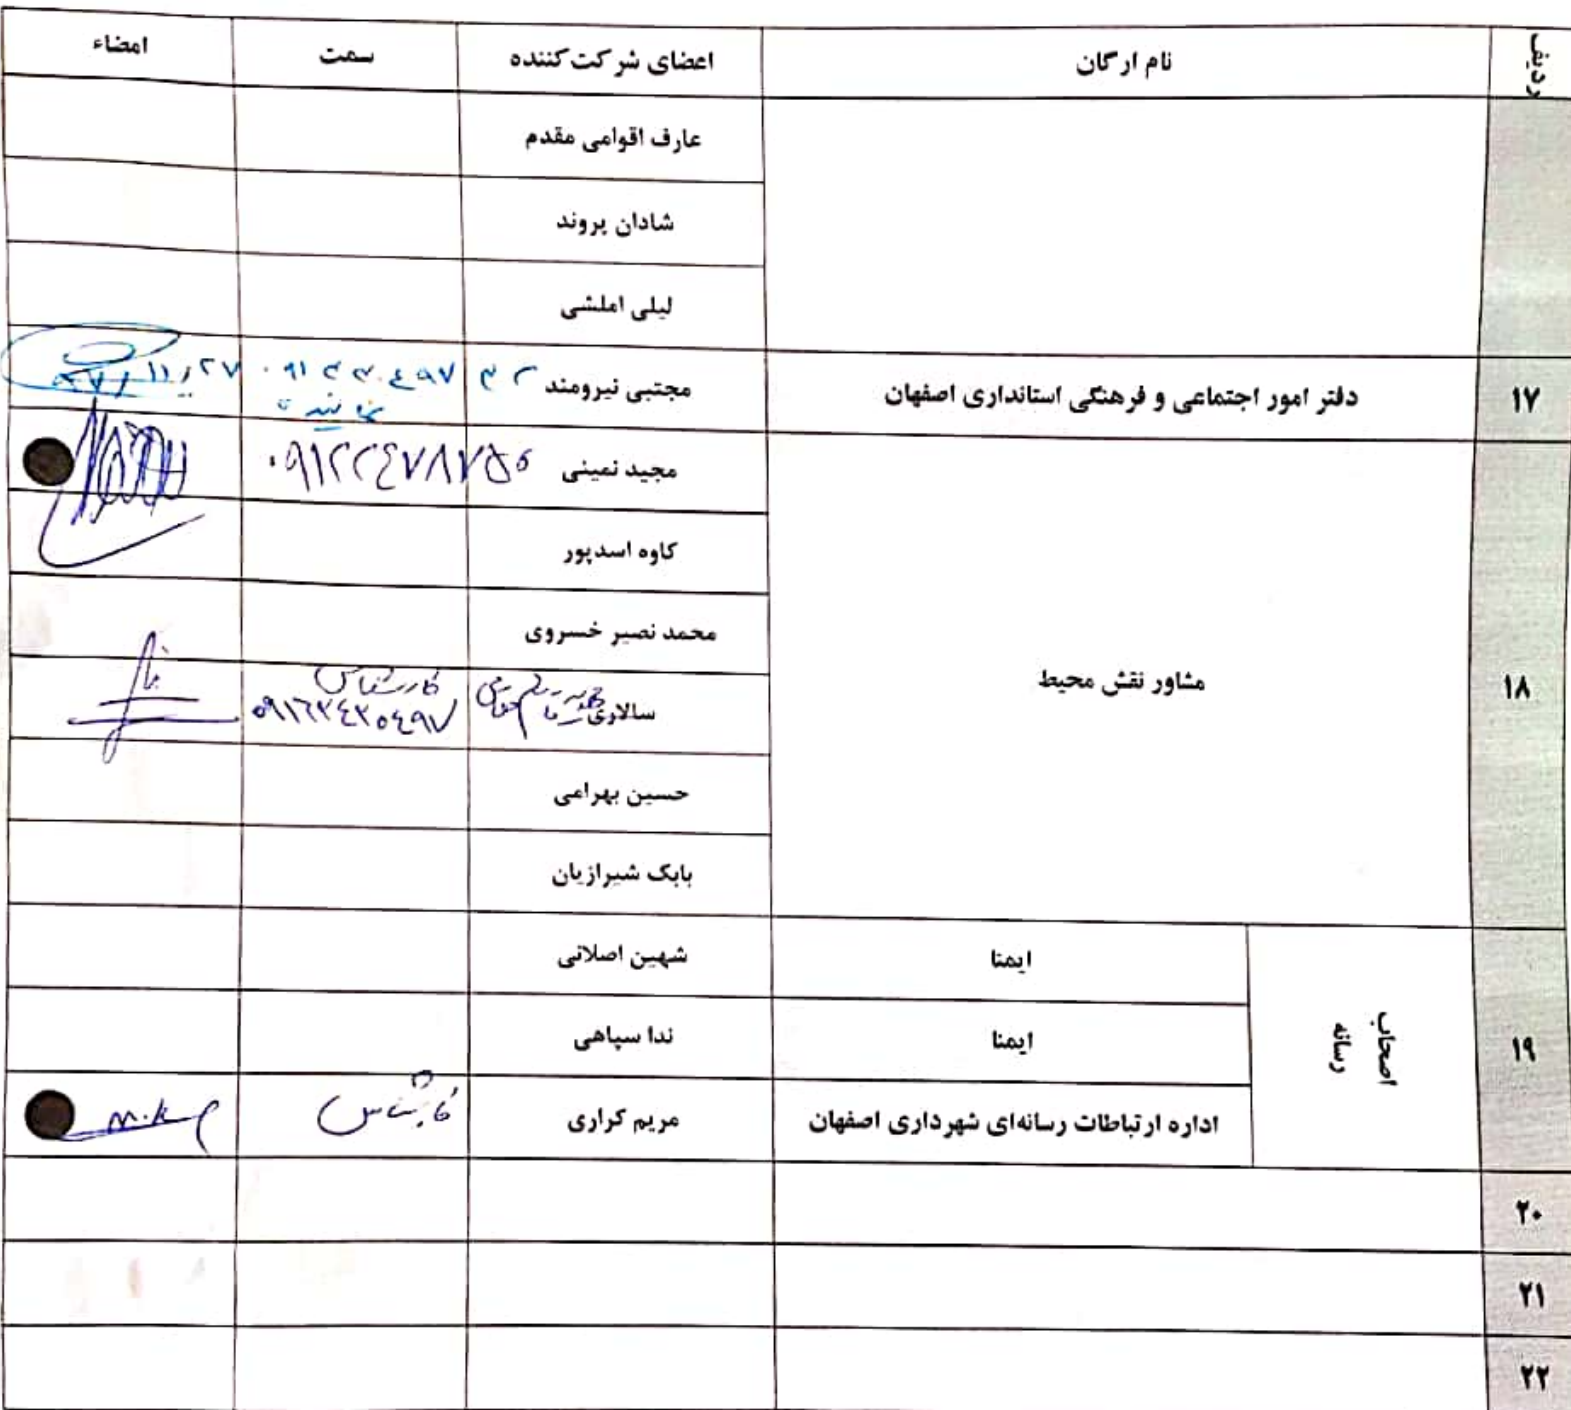 ردیف نام ارگان اعضای شرکت‌کننده سمت امضاء
عارف اقوامی مقدم
شادان پروند
لیلی املشی
۱۷ دفتر امور اجتماعی و فرهنگی استانداری اصفهان مجتبی نیرومند
نماینده
۱۸ مشاور نقش محیط
مجید نمینی ۰۹۱۲۲۴۷۸۷۵۵
کاوه اسدپور
محمد نصیر خسروی
سالاری کارشناس
حسین بهرامی
بابک شیرازیان
۱۹ اصحاب رسانه
ایمنا شهین اصلانی
ایمنا ندا سپاهی
اداره ارتباطات رسانه‌ای شهرداری اصفهان مریم کراری کارشناس m.k
۲۰
۲۱
۲۲